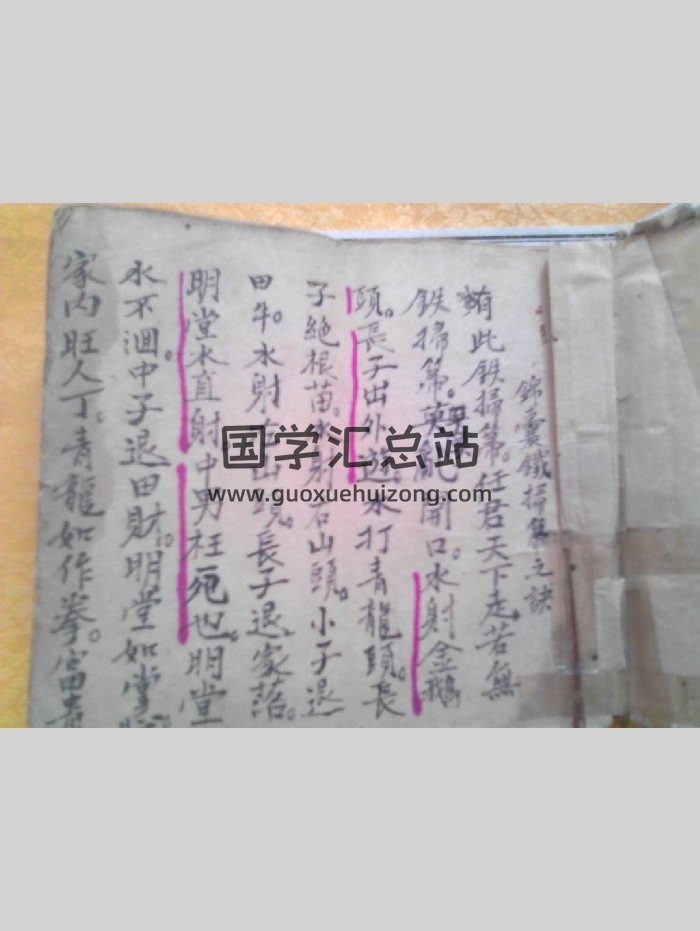 錦囊鐵掃帚之訣
有此鉄掃帚。任君天下走。若無
鉄掃帚。莫能開口。水射金鵝
頭。長子出外遊。水打青龍頭。長
子絶根苗。水射右山頭。小子退
田牛。水射左山頭。長子退家落。
明堂水直射。中男枉死也。明堂
水不洄。中子退田財。明堂如堂
家内旺人丁。青龍如作拳。富貴
国学汇总站
www.guoxuehuizong.com